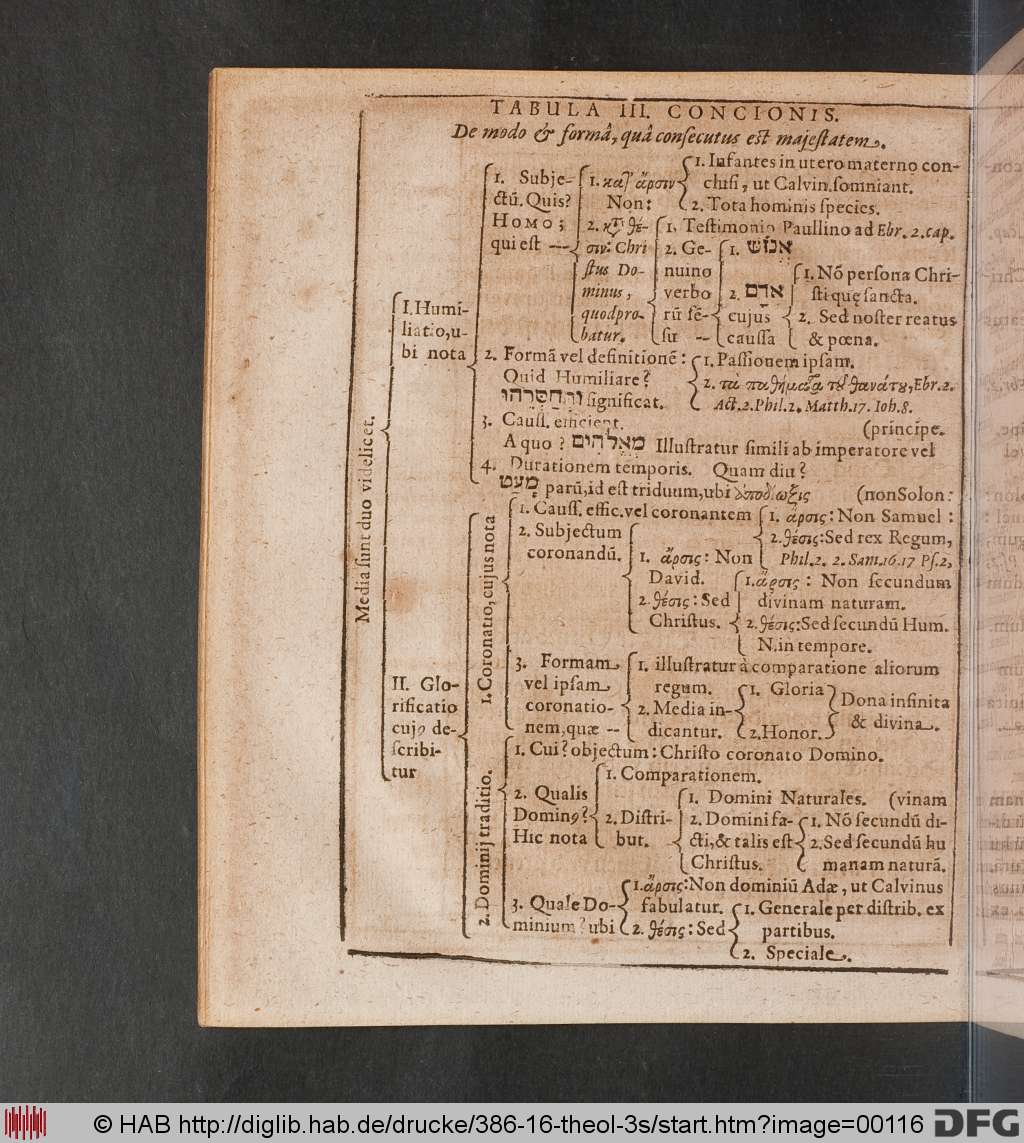 TABULA III. CONCIONIS.
De modo & formâ, quâ consecutus est majestatem.
Media sunt duo videlicet.
I. Humi-
liatio, u-
bi nota
1. Subje-
ctũ. Quis?
HOMO;
qui est --
1. κατ' ἄρσιν
Non:
1. Infantes in utero materno con-
clusi, ut Calvin. somniant.
2. Tota hominis species.
2. κτ̀ θέ-
σιν: Chri
stus Do-
minus,
quod pro-
batur.
1. Testimonio Paullino ad Ebr. 2. cap.
2. Ge-
nuino
verbo
rũ sẽ-
su --
1. אֱנוֹשׁ
2. אָדָם
cujus
caussa
1. Nõ persona Chri-
sti quę sancta.
2. Sed noster reatus
& pœna.
2. Formã vel definitionẽ:
Quid Humiliare?
וַתְּחַסְּרֵהוּ significat.
1. Passionem ipsam.
2. τὰ παθήματα τοῦ θανάτου, Ebr. 2.
Act. 2. Phil. 2. Matth. 17. Ioh. 8.
3. Causs. efficient.
(principe.
A quo? מֵאֱלֹהִים Illustratur simili ab imperatore vel
4. Durationem temporis. Quam diu?
מְעַט parũ, id est triduum, ubi
(non Solon:
II. Glo-
rificatio
cujꝰ de-
scribi-
tur
1. Coronatio, cujus nota
1. Causs. effic. vel coronantem
1. ἄρσις: Non Samuel:
2. θέσις: Sed rex Regum,
Phil. 2. 2. Sam. 16. 17 Ps. 2,
2. Subjectum
coronandũ.
1. ἄρσις: Non
David.
2. θέσις: Sed
Christus.
1. ἄρσις: Non secundum
divinam naturam.
2. θέσις: Sed secundũ Hum.
N. in tempore.
3. Formam
vel ipsam
coronatio-
nem, quæ --
1. illustratur à comparatione aliorum
regum.
2. Media in-
dicantur.
1. Gloria
2. Honor.
Dona infinita
& divina.
2. Dominij traditio.
1. Cui? objectum: Christo coronato Domino.
2. Qualis
Dominꝰ?
Hic nota
1. Comparationem.
2. Distri-
but.
1. Domini Naturales.
(vinam
2. Domini fa-
cti, & talis est
Christus.
1. Nõ secundũ di-
2. Sed secundũ hu
manam naturã.
3. Quale Do-
minium? ubi
1. ἄρσις: Non dominiũ Adæ, ut Calvinus
fabulatur.
2. θέσις: Sed
1. Generale per distrib. ex
partibus.
2. Speciale.
© HAB http://diglib.hab.de/drucke/386-16-theol-3s/start.htm?image=00116
DFG